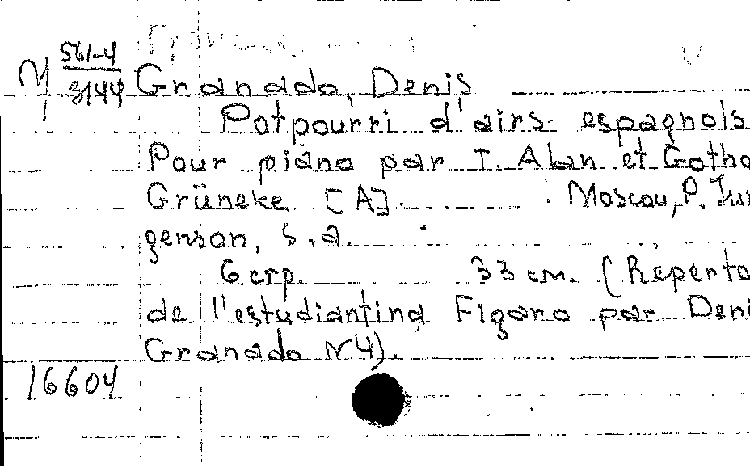 М 561-4
3144
Granado, Denis
Potpourri d'airs espagnols
Pour piano par I. Alan et Gotho
Grüneke [A] Moscou, P. Jur
genson, s.a.
6 стр. 33 cm. (Reperto
de l'estudiantina Figaro par Deni
Granado N4).
16604